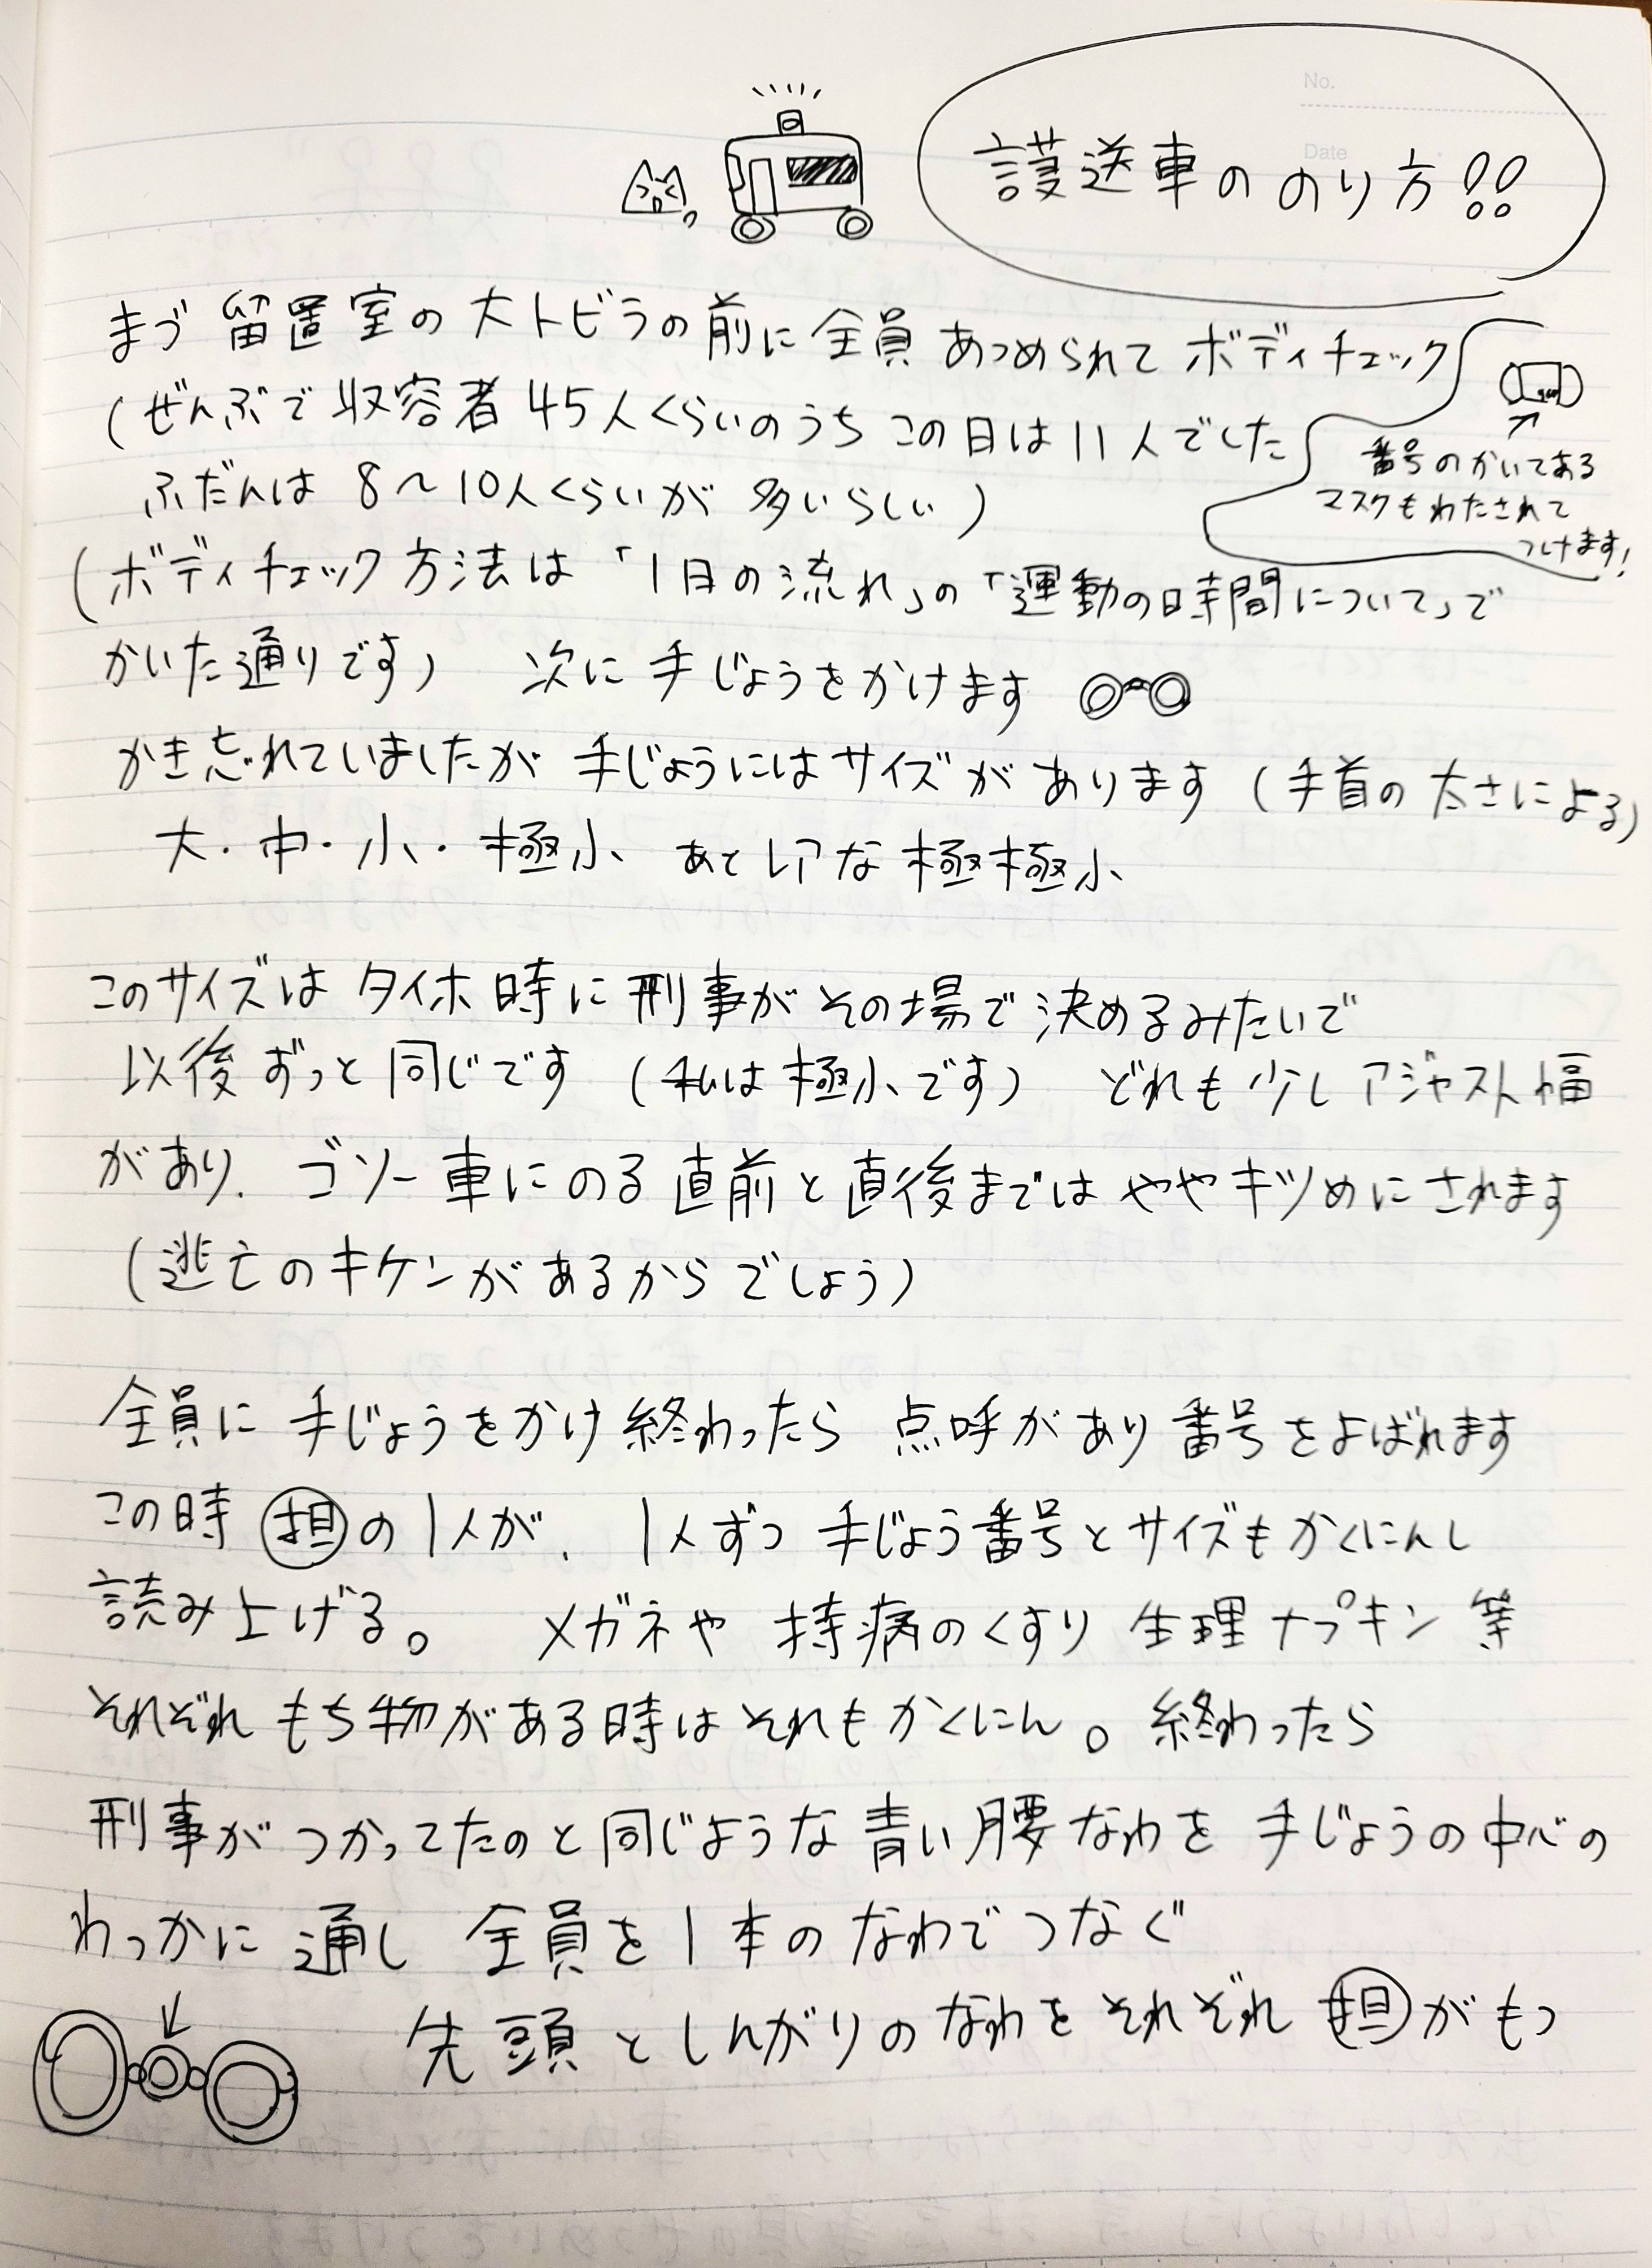 No.
Date
護送車ののり方!!
まず留置室の大トビラの前に全員あつめられてボディチェック
(ぜんぶで収容者45人くらいのうちこの日は11人でした
ふだんは8〜10人くらいが多いらしい)
番号のかいてある
マスクもわたされて
つけます!
(ボディチェック方法は「1日の流れ」の「運動の時間について」で
かいた通りです) 次に手じょうをかけます
かき忘れていましたが手じょうにはサイズがあります(手首の太さによる)
大・中・小・極小 あとレアな極極小
このサイズはタイホ時に刑事がその場で決めるみたいで
以後ずっと同じです (私は極小です) どれも少しアジャスト幅
があり、ゴソー車にのる直前と直後まではややキツめにされます
(逃亡のキケンがあるからでしょう)
全員に手じょうをかけ終わったら点呼があり番号をよばれます
この時㊞の1人が、1人ずつ手じょう番号とサイズもかくにんし
読み上げる。 メガネや持病のくすり生理ナプキン等
それぞれもち物がある時はそれもかくにん。終わったら
刑事がつかってたのと同じような青い腰なわを手じょうの中心の
わっかに通し全員を1本のなわでつなぐ
先頭としんがりのなわをそれぞれ担がもつ